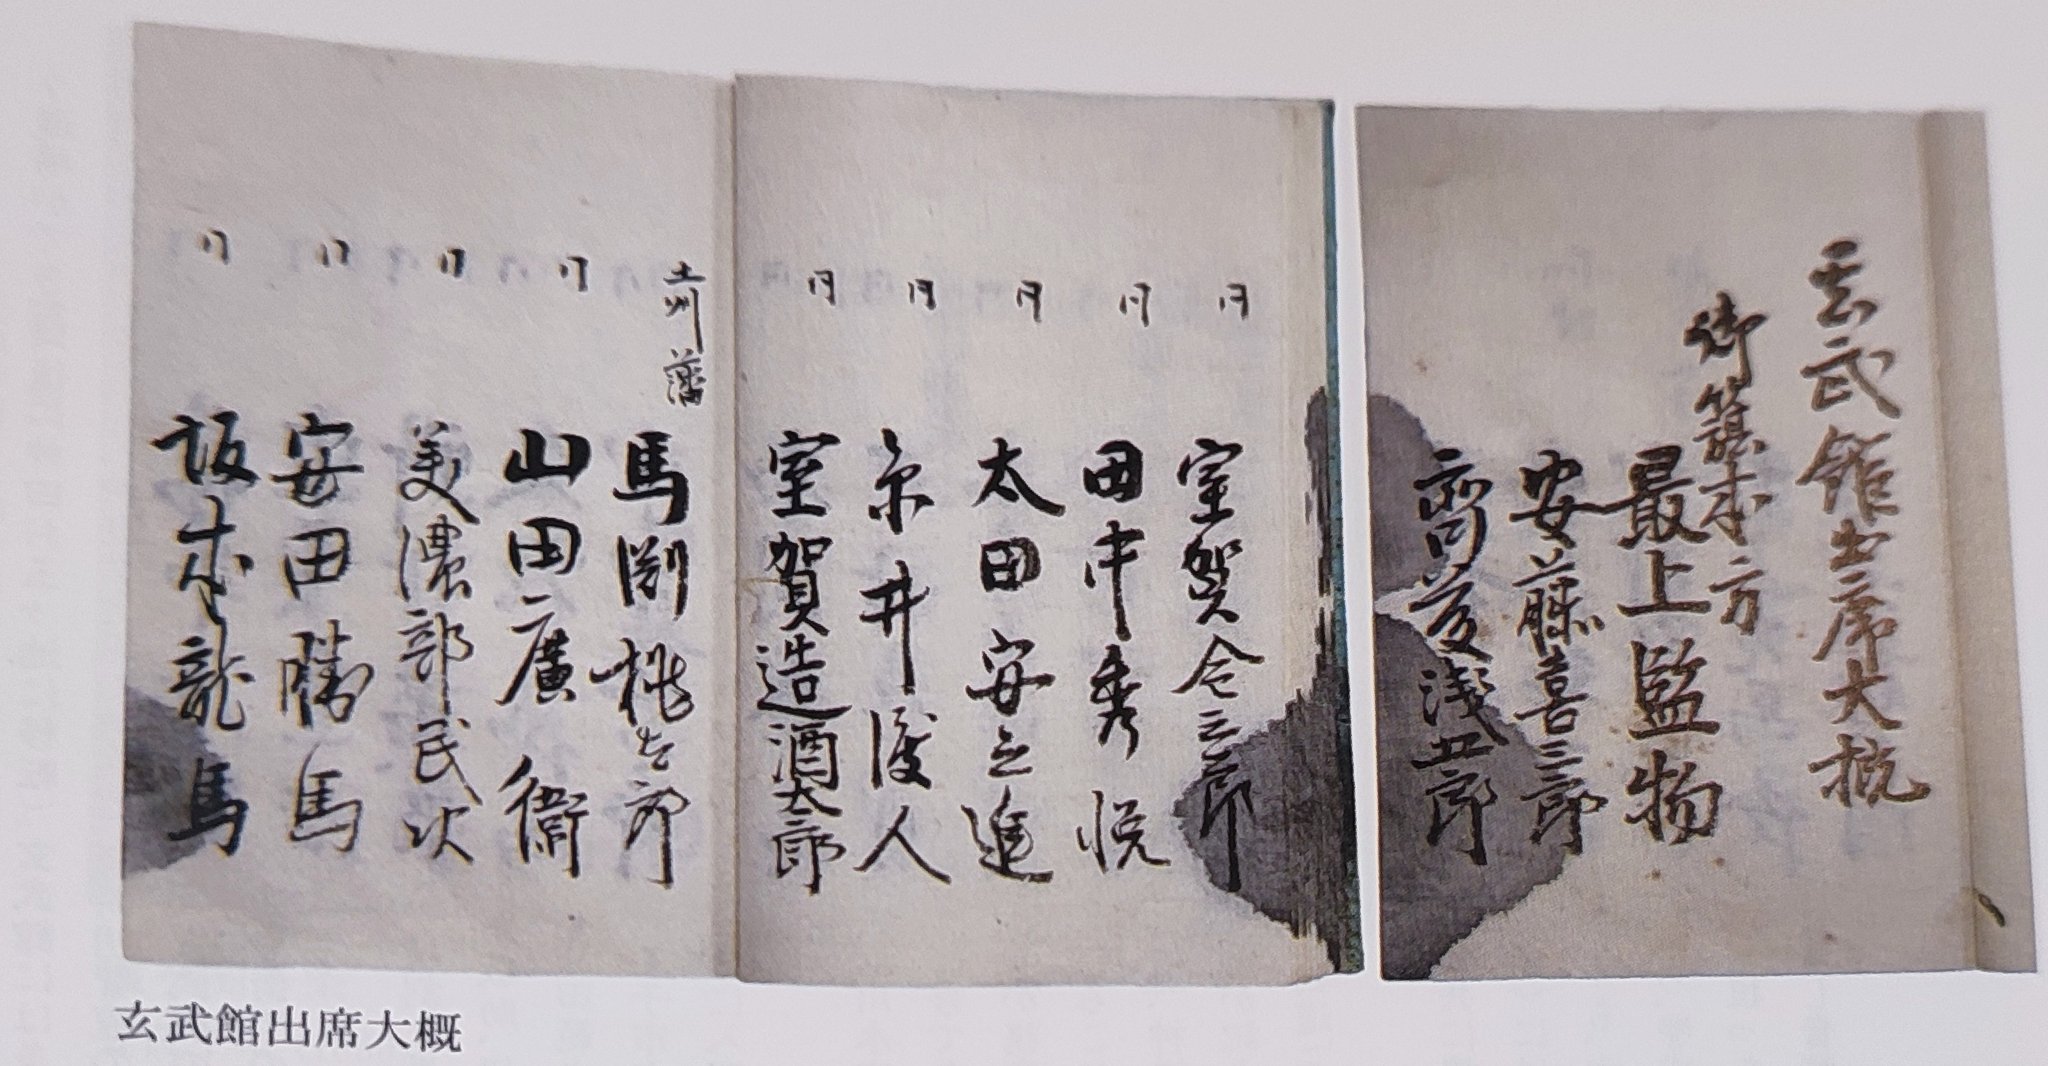 玄武館出席大概
御籏本方
最上監物
安藤喜三郎
齋藤浅五郎
同 室賀三郎
同 田中秀悦
同 太田安之進
同 井人
同 室賀造酒太郎
土州藩 馬渕桃太郎
同 山田廣衛
同 美濃部民次
同 安田勝馬
同 坂本龍馬
玄武館出席大概